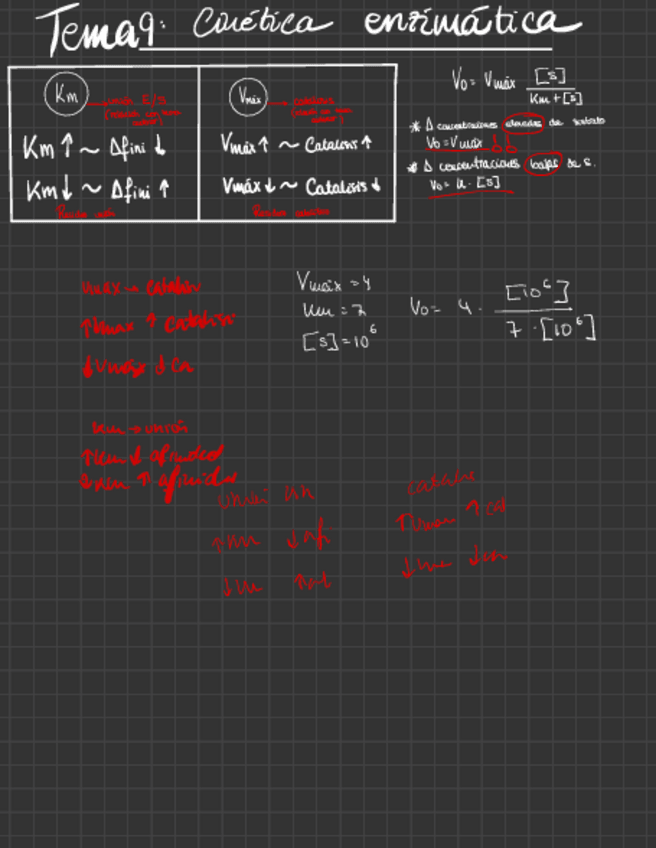 Tema 9: Cinética enzimática
Km → unión E/S
Km ↑ ~ Afini ↓
Km ↓ ~ Afini ↑
Vmáx → catálisis
Vmáx ↑ ~ Catálisis ↑
Vmáx ↓ ~ Catálisis ↓
V₀ = Vmáx [S] / Km + [S]
* A concentraciones elevadas de sustrato
V₀ = Vmáx
* A concentraciones bajas de S.
V₀ = k · [S]
Vmáx → catálisis
↑ Vmax ↑ catálisis
↓ Vmáx ↓ ca
Vmáx = 4
Km = 7
[S] = 10⁶
V₀ = 4 · [10⁶] / 7 · [10⁶]
Km → unión
↑ Km ↓ afinidad
↓ Km ↑ afinidad
unión
↑ Km ↓ afi
catálisis
↑ Vmax ↑ cat